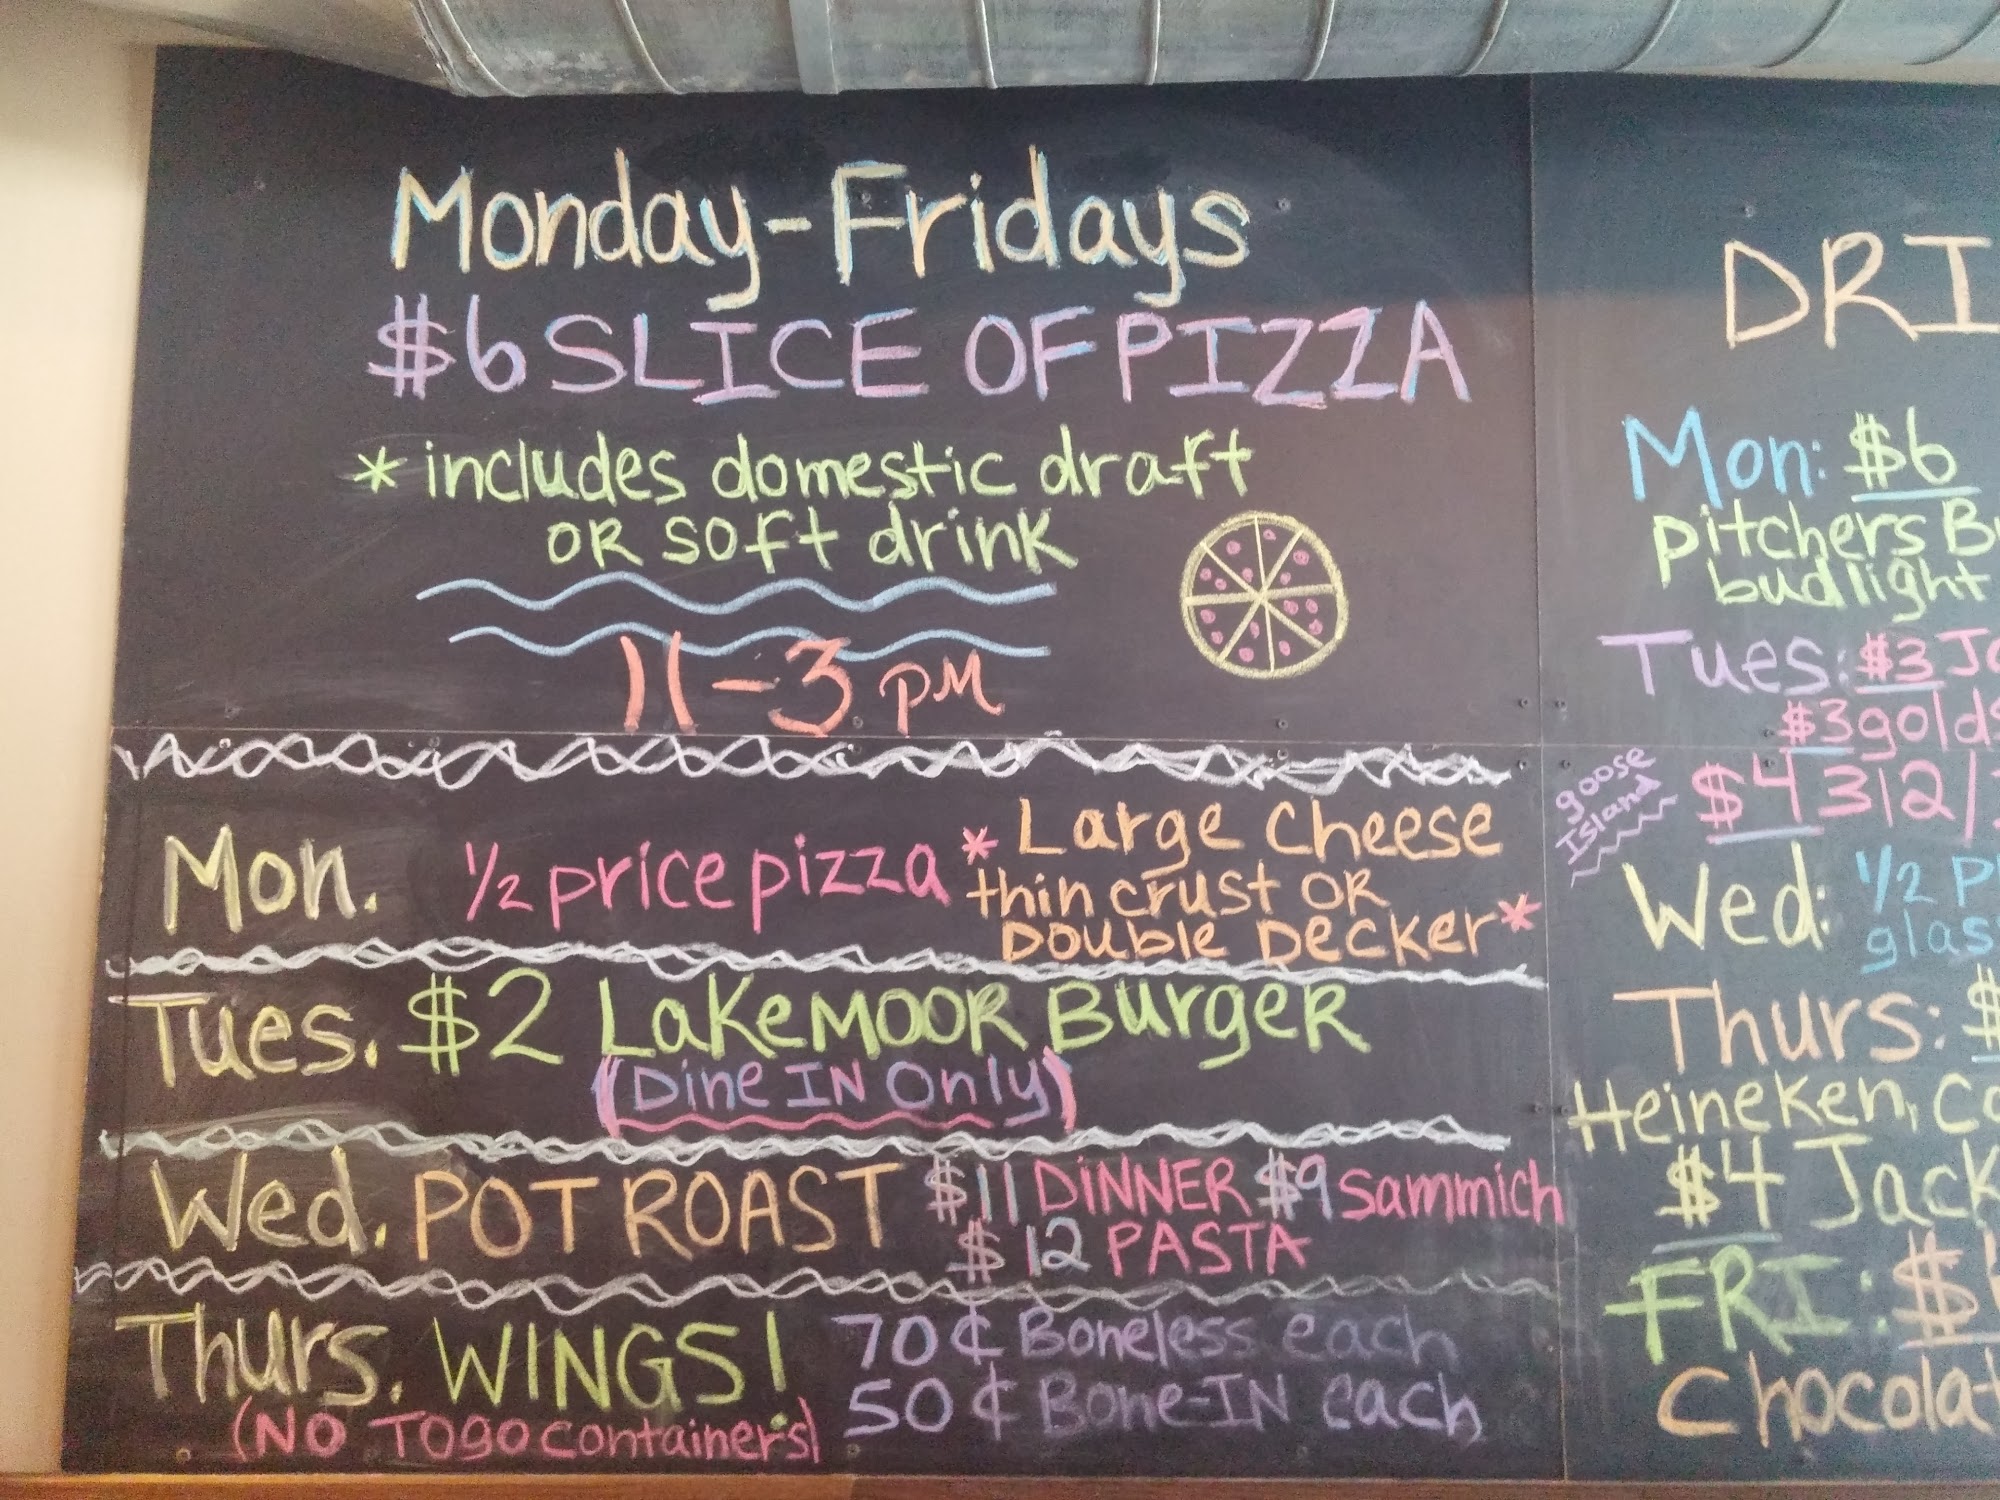 Monday-Fridays
$6 SLICE OF PIZZA
* includes domestic draft
OR soft drink
11-3 PM
Mon. 1/2 price pizza * Large Cheese
thin crust OR
Double Decker *
Tues. $2 Lakemoor Burger
(Dine In Only)
Wed. POT ROAST $11 DINNER $9 Sammich
$12 PASTA
Thurs. WINGS! 70¢ Boneless each
50¢ Bone-IN each
(NO TOGO containers)
DRI
Mon: $6
pitchers Bu
budlight
Tues: $3 Ja
$3 golds
goose
Island
$4 312/
Wed: 1/2 P
glas
Thurs: $
Heineken, Co
$4 Jack
FRI: $
Chocolat